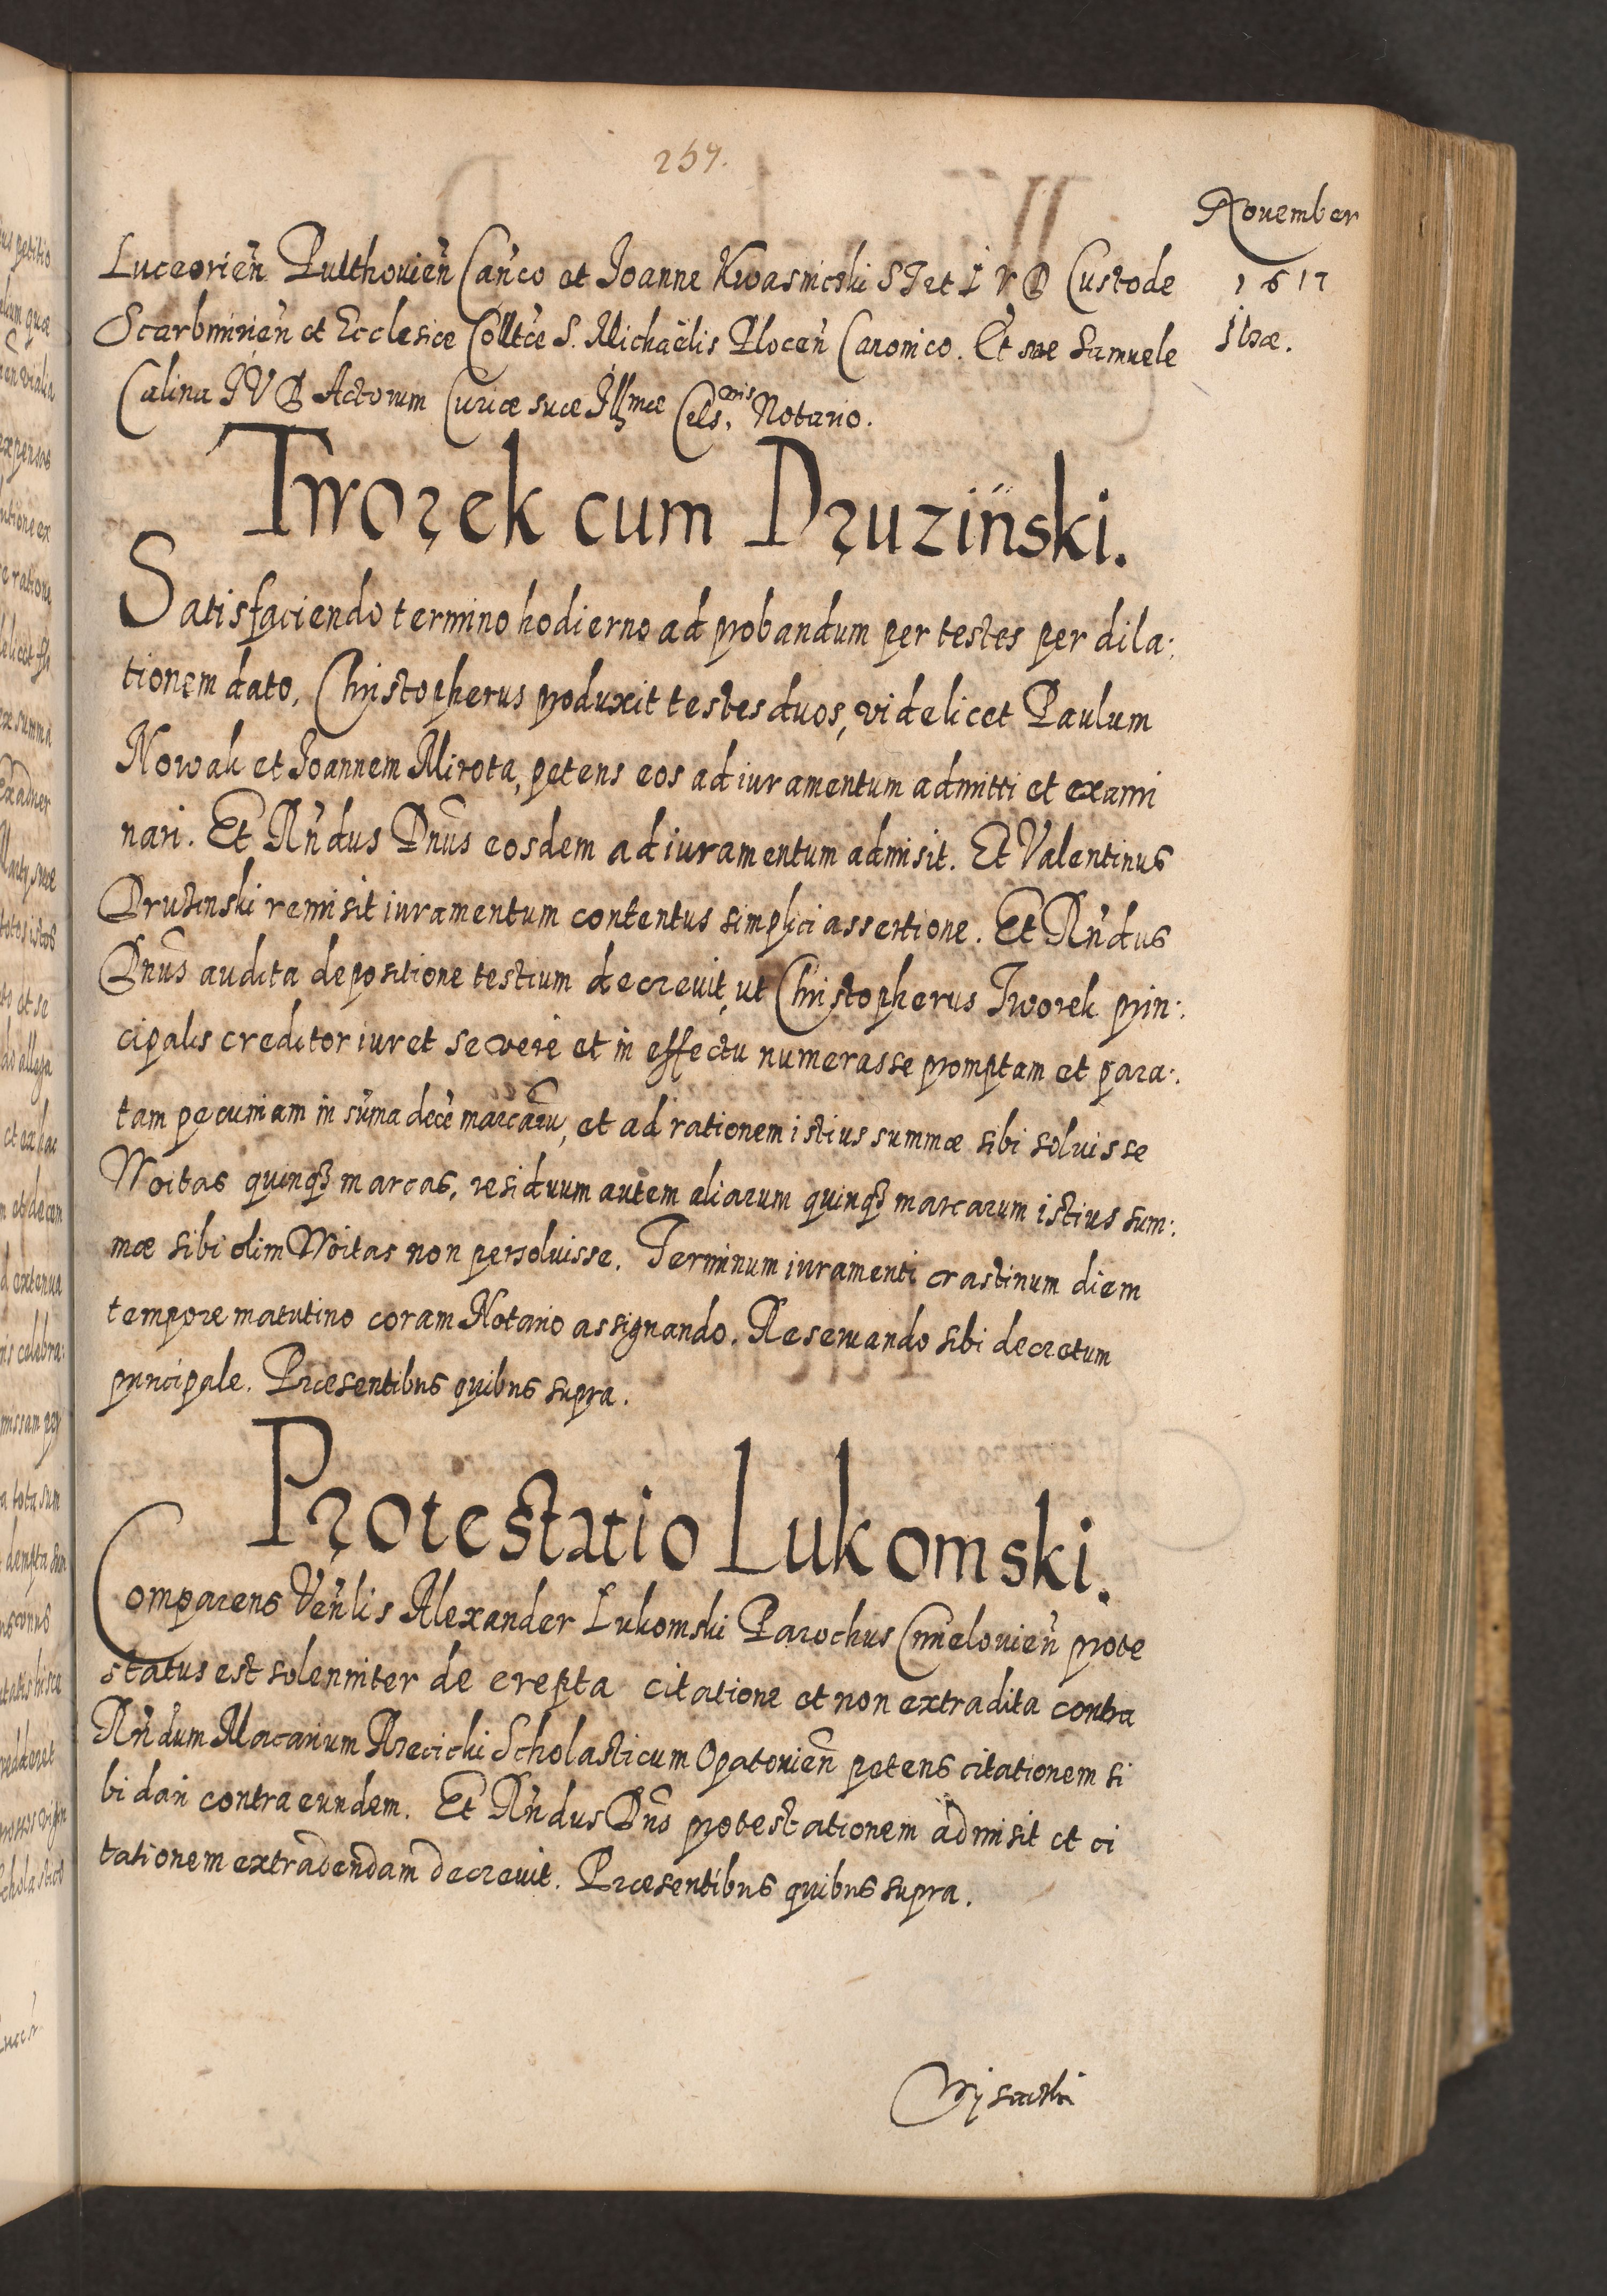 257.
November
1617
Ilzæ.
Luceorień Pulthovień Cańco et Joanne Kwasnicski S T et I V D Custode
Scarbimirień et Ecclesiæ Colltæ S. Michaëlis Ploceń Canonico. Et me Samuele
Calina I V D Actorum Curiæ suæ Illmæ Cels.onis Notario.
Tworek cum Druziński.
Satisfaciendo termino hodierno ad probandum per testes per dila:
tionem dato, Christopherus produxit testes duos, videlicet Paulum
Nowak et Joannem Mirota, petens eos ad iuramentum admitti et exami
nari. Et Rńdus Dnus eosdem ad iuramentum admisit. Et Valentinus
Druzinski remisit iuramentum contentus simplici assertione. Et Rńdus
Dnus audita depositione testium decrevit, ut Christopherus Tworek prin:
cipalis creditor iuret se vere et in effectu numerasse promptam et para:
tam pecuniam in sūma decē marcarū, et ad rationem istius summæ sibi solvisse
Woitas quinq3 marcas, residuum autem aliarum quinq3 marcarum istius sum:
mæ sibi olim Woitas non persolvisse. Terminum iuramenti crastinum diem
tempore matutino coram Notario assignando. Reservando sibi decretum
principale. Præsentibus quibus supra.
Protestatio Lukomski.
Comparens Veńlis Alexander Lukomski Parochus Cmielovień prote
status est solenniter de erepta citatione et non extradita contra
Rńdum Macarium Rzecicki Scholasticum Opatovień petens citationem si
bi dari contra eundem. Et Rńdus Dns protestationem admisit et ci
tationem extradendam decrevit. Præsentibus quibus supra.